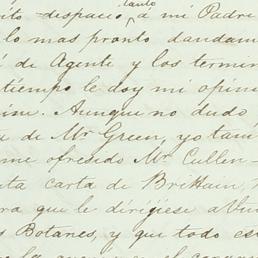 tanto
ito despacio a mi Padre
lo mas pronto dandam
de Agente y los termin
tiempo le doy mi opini
Aunque no dudo
a de Mr Green, yo tam
me ofresido Mr Cullen
ta carta de Brittain,
ra que le dirigiese
s Botanes, y que todo es